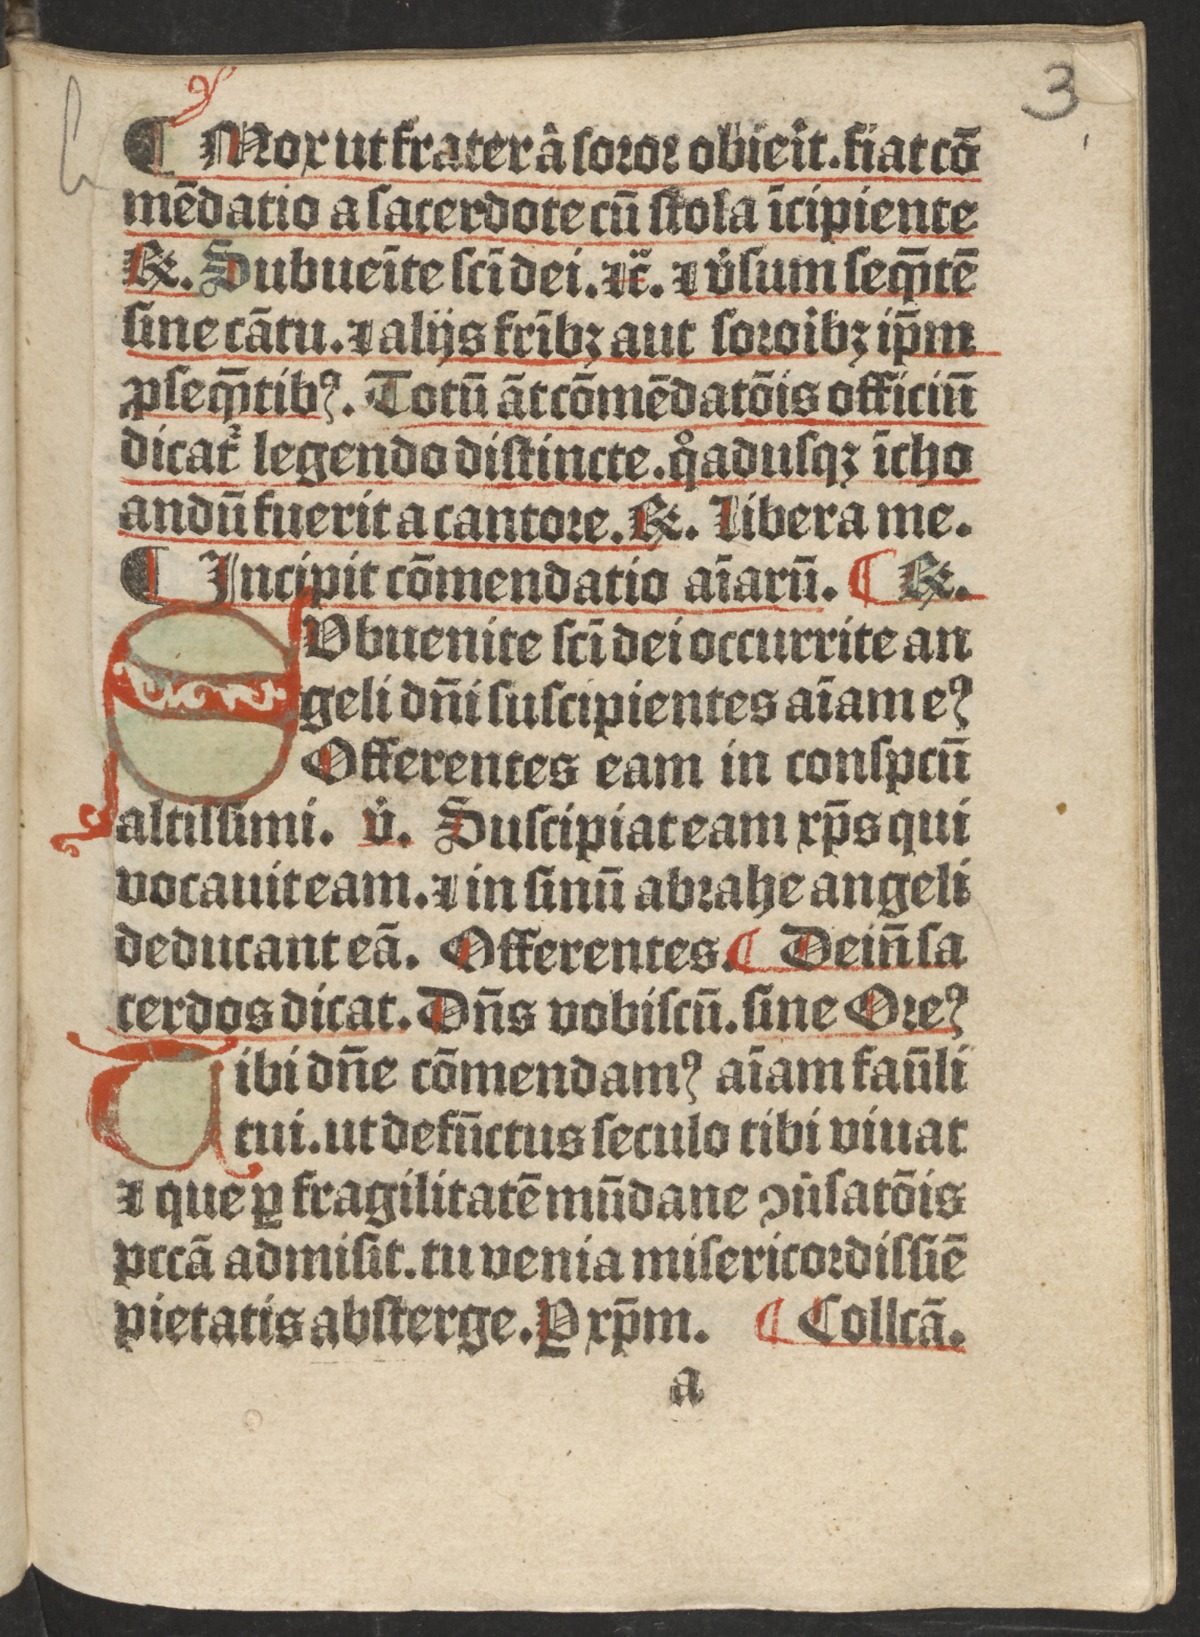 3
¶ Mox ut frater â soꝛoꝛ obieit. fiat cō
mēdatio a sacerdote cū stola īcipiente
℟. Subueīte scī dei. ⁊c̈. ⁊ v̊sum seq̄ntē
sine cātu. ⁊ aliis fr̄ibꝫ aut soꝛoibꝫ ip̄m
ꝓseq̄ntibꝰ. Totū āt cōmēdatōis officiū
dicat᷑ legendo distincte. qͦadusqꝫ īcho
andū fuerit a cantoꝛe. ℟. Libera me.
¶ Incipit cōmendatio aīarū. ¶ ℟.
SUbuenite scī dei occurrite an
geli dn̄i suscipientes aīam eꝰ
Offerentes eam in conspcū
altissimi. v̊. Suscipiat eam xp̄s qui
vocauit eam. ⁊ in sinū abꝛahe angeli
deducant eā. Offerentes. ¶ Dein̄ sa
cerdos dicat. Dn̄s vobiscū. sine Oꝛeꝰ
Tibi dn̄e cōmendamꝰ aīam faūli
tui. ut defūctus seculo tibi viuat
⁊ que ꝑ fragilitatē mūdane ↄu̇satōis
pccā admisit. tu venia misericoꝛdissiē
pietatis absterge. P̲ xp̄m. ¶ Collcā.
a